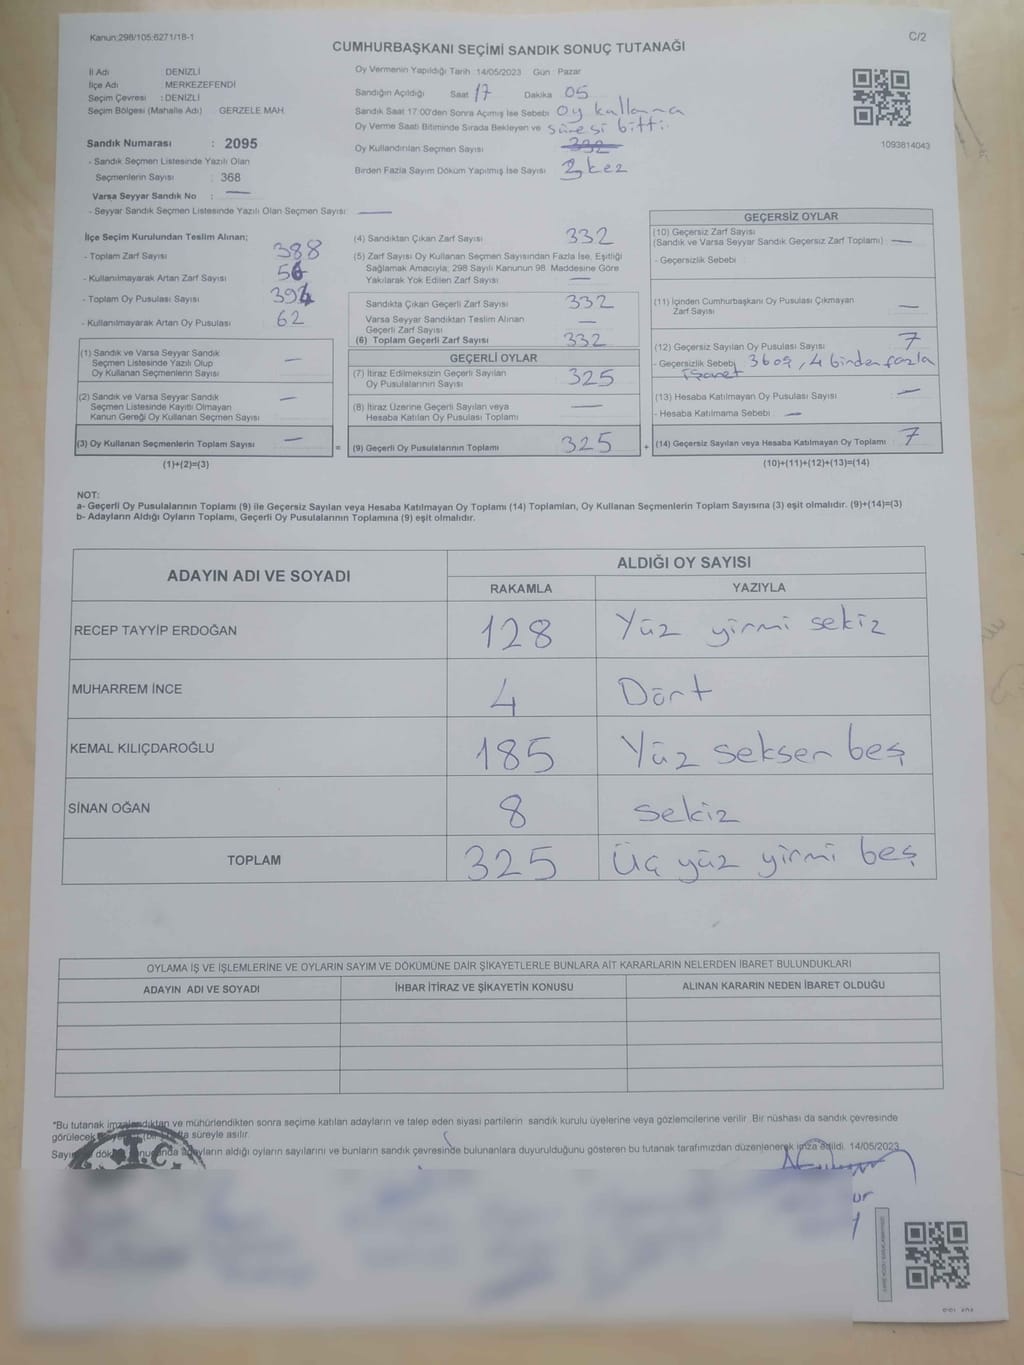 Kanun:298/105:6271/18-1
C/2
CUMHURBAŞKANI SEÇİMİ SANDIK SONUÇ TUTANAĞI
İl Adı : DENİZLİ
İlçe Adı : MERKEZEFENDİ
Seçim Çevresi : DENİZLİ
Seçim Bölgesi (Mahalle Adı) : GERZELE MAH.
Sandık Numarası : 2095
- Sandık Seçmen Listesinde Yazılı Olan
Seçmenlerin Sayısı : 368
Varsa Seyyar Sandık No : —
- Seyyar Sandık Seçmen Listesinde Yazılı Olan Seçmen Sayısı: —
Oy Vermenin Yapıldığı Tarih :14/05/2023 Gün : Pazar
Sandığın Açıldığı Saat 17 Dakika 05
Sandık Saat 17:00'den Sonra Açımış İse Sebebi Oy kullanma
Oy Verme Saati Bitiminde Sırada Bekleyen ve süresi bitti.
Oy Kullandırılan Seçmen Sayısı 332
Birden Fazla Sayım Döküm Yapılmış İse Sayısı 2 kez
1093814043
İlçe Seçim Kurulundan Teslim Alınan;
- Toplam Zarf Sayısı 388
- Kullanılmayarak Artan Zarf Sayısı 56
- Toplam Oy Pusulası Sayısı 394
- Kullanılmayarak Artan Oy Pusulası 62
(1) Sandık ve Varsa Seyyar Sandık
Seçmen Listesinde Yazılı Olup
Oy Kullanan Seçmenlerin Sayısı —
(2) Sandık ve Varsa Seyyar Sandık
Seçmen Listesinde Kayıtlı Olmayan
Kanun Gereği Oy Kullanan Seçmen Sayısı —
(3) Oy Kullanan Seçmenlerin Toplam Sayısı —
(1)+(2)=(3)
=
(4) Sandıktan Çıkan Zarf Sayısı 332
(5) Zarf Sayısı Oy Kullanan Seçmen Sayısından Fazla İse, Eşitliği
Sağlamak Amacıyla; 298 Sayılı Kanunun 98. Maddesine Göre
Yakılarak Yok Edilen Zarf Sayısı —
Sandıkta Çıkan Geçerli Zarf Sayısı 332
Varsa Seyyar Sandıktan Teslim Alınan
Geçerli Zarf Sayısı —
(6) Toplam Geçerli Zarf Sayısı 332
GEÇERLİ OYLAR
(7) İtiraz Edilmeksizin Geçerli Sayılan
Oy Pusulalarının Sayısı 325
(8) İtiraz Üzerine Geçerli Sayılan veya
Hesaba Katılan Oy Pusulaları Toplamı —
(9) Geçerli Oy Pusulalarının Toplamı 325
+
GEÇERSİZ OYLAR
(10) Geçersiz Zarf Sayısı
(Sandık ve Varsa Seyyar Sandık Geçersiz Zarf Toplamı) —
- Geçersizlik Sebebi :
(11) İçinden Cumhurbaşkanı Oy Pusulası Çıkmayan
Zarf Sayısı —
(12) Geçersiz Sayılan Oy Pusulası Sayısı 7
- Geçersizlik Sebebi 3 boş, 4 birden fazla
işaret
(13) Hesaba Katılmayan Oy Pusulası Sayısı —
- Hesaba Katılmama Sebebi : —
(14) Geçersiz Sayılan veya Hesaba Katılmayan Oy Toplamı 7
(10)+(11)+(12)+(13)=(14)
NOT:
a- Geçerli Oy Pusulalarının Toplamı (9) ile Geçersiz Sayılan veya Hesaba Katılmayan Oy Toplamı (14) Toplamları, Oy Kullanan Seçmenlerin Toplam Sayısına (3) eşit olmalıdır. (9)+(14)=(3)
b- Adayların Aldığı Oyların Toplamı, Geçerli Oy Pusulalarının Toplamına (9) eşit olmalıdır.
ADAYIN ADI VE SOYADI ALDIĞI OY SAYISI
RAKAMLA YAZIYLA
RECEP TAYYİP ERDOĞAN 128 Yüz yirmi sekiz
MUHARREM İNCE 4 Dört
KEMAL KILIÇDAROĞLU 185 Yüz seksen beş
SİNAN OĞAN 8 sekiz
TOPLAM 325 Üç yüz yirmi beş
OYLAMA İŞ VE İŞLEMLERİNE VE OYLARIN SAYIM VE DÖKÜMÜNE DAİR ŞİKAYETLERLE BUNLARA AİT KARARLARIN NELERDEN İBARET BULUNDUKLARI
ADAYIN ADI VE SOYADI İHBAR İTİRAZ VE ŞİKAYETİN KONUSU ALINAN KARARIN NEDEN İBARET OLDUĞU
*Bu tutanak imzalandıktan ve mühürlendikten sonra seçime katılan adayların ve talep eden siyasi partilerin sandık kurulu üyelerine veya gözlemcilerine verilir. Bir nüshası da sandık çevresinde
görülecek hafta süreyle asılır.
adayların aldığı oyların sayılarını ve bunların sandık çevresinde bulunanlara duyurulduğunu gösteren bu tutanak tarafımızdan düzenlenerek imza edildi. 14/05/2023
T.C.